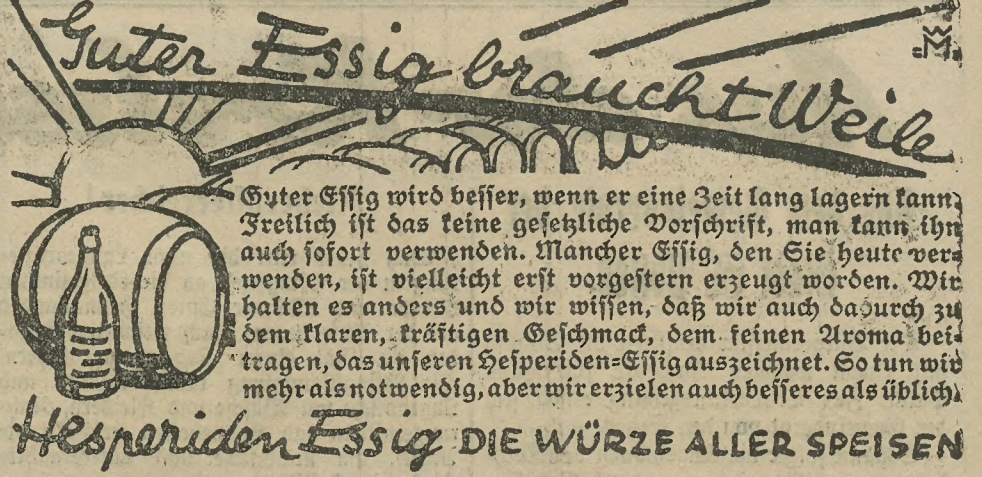 Guter Essig braucht Weile
Guter Essig wird besser, wenn er eine Zeit lang lagern kann.
Freilich ist das keine gesetzliche Vorschrift, man kann ihn
auch sofort verwenden. Mancher Essig, den Sie heute ver-
wenden, ist vielleicht erst vorgestern erzeugt worden. Wir
halten es anders und wir wissen, daß wir auch dadurch zu
dem klaren, kräftigen Geschmack, dem feinen Aroma bei-
tragen, das unseren Hesperiden-Essig auszeichnet. So tun wir
mehr als notwendig, aber wir erzielen auch besseres als üblich.
Hesperiden Essig DIE WÜRZE ALLER SPEISEN